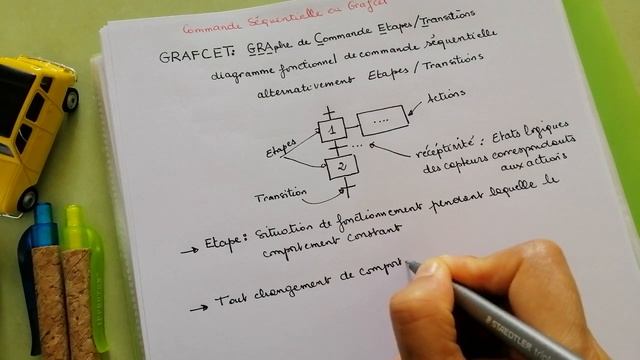 Commande Séquentielle ou Grafcet
GRAFCET: GRAphe de Commande Etapes/Transitions
diagramme fonctionnel de commande séquentielle
alternativement Etapes/Transitions
Actions
1
....
Etapes
...
réceptivité : Etats logiques
des capteurs correspondants
aux actions
2
Transition
→ Etape : Situation de fonctionnement pendant laquelle le
comportement constant
→ Tout changement de compor
STAEDTLER